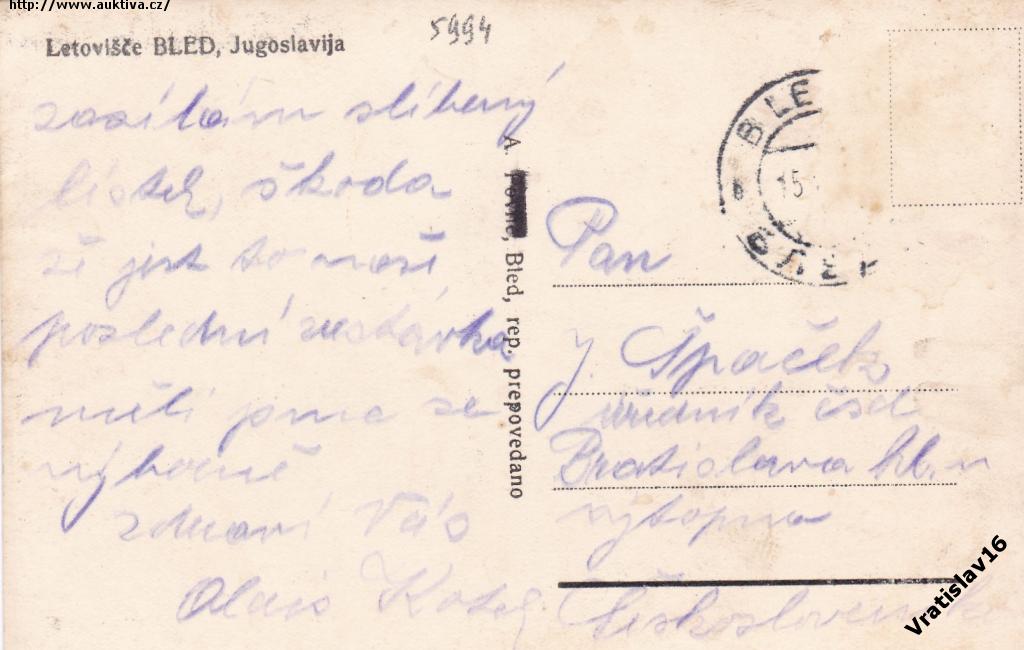 http://www.auktiva.cz/
Letovišče BLED, Jugoslavija
5994
zasílám slíbený
lístek, škoda
že jest to naše
poslední zastávka
měli jsme se
výborně
zdraví Vás
Alois
A. Bled, rep. prepovedano
BLE
15
БЛЕ
Pan
J. Špaček
úředník čsd
Bratislava hl. n
výtopna
Československo
Vratislav16